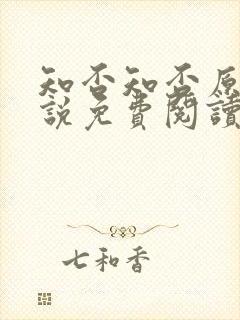 知否知否原
說免費閱讀
七和香